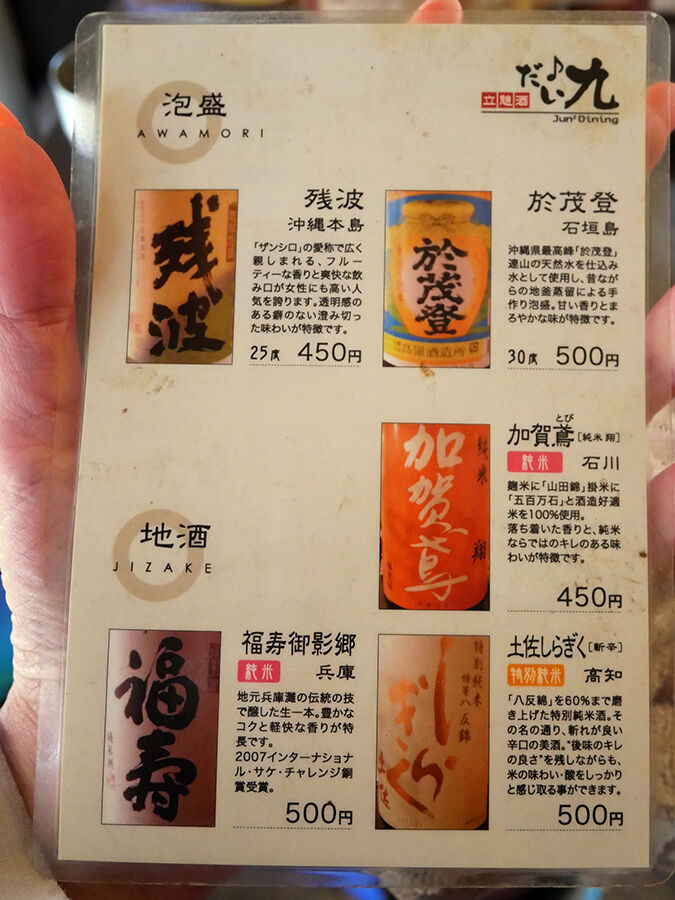 泡盛
AWAMORI
だい九
立呑酒
Jun² Dining
残波
残波
沖縄本島
「ザンシロ」の愛称で広く
親しまれる、フルー
ティーな香りと爽快な飲
み口が女性にも高い人
気を誇ります。透明感の
ある癖のない澄み切っ
た味わいが特徴です。
25度 450円
於茂登
高嶺酒造所
於茂登
石垣島
沖縄県最高峰「於茂登」
連山の天然水を仕込み
水として使用し、昔なが
らの地釜蒸留による手
作り泡盛。甘い香りとま
ろやかな味が特徴です。
30度 500円
地酒
JIZAKE
加賀鳶
純米
翔
とび
加賀鳶[純米 翔]
純米 石川
麹米に「山田錦」掛米に
「五百万石」と酒造好適
米を100%使用。
落ち着いた香りと、純米
ならではのキレのある味
わいが特徴です。
450円
福寿
純米酒
福寿御影郷
純米 兵庫
地元兵庫灘の伝統の技
で醸した生一本。豊かな
コクと軽快な香りが特
長です。
2007インターナショナ
ル・サケ・チャレンジ銅
賞受賞。
500円
特別純米
特等八反錦
土佐しらぎく
土佐しらぎく[斬辛]
特別純米 高知
「八反錦」を60%まで磨
き上げた特別純米酒。そ
の名の通り、斬れが良い
辛口の美酒。“後味のキレ
の良さ”を残しながらも、
米の味わい・酸をしっかり
と感じ取る事ができます。
500円